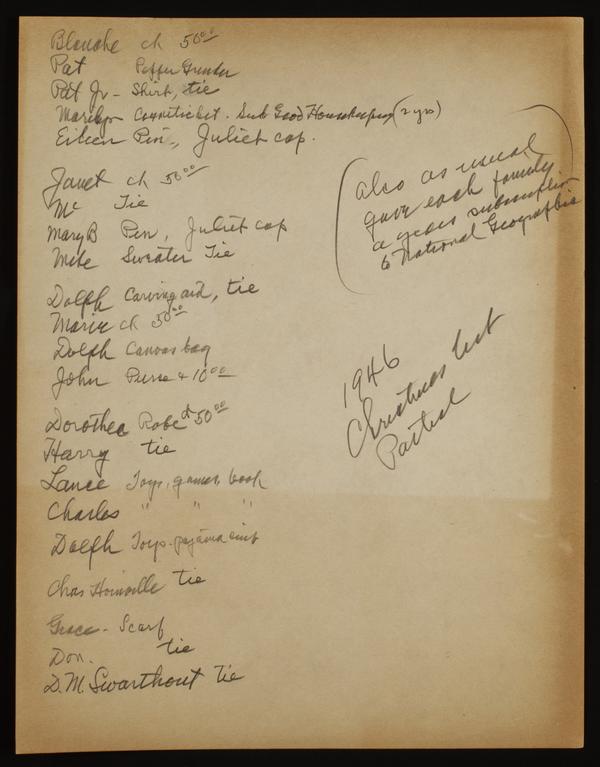 Blanche ck 50⁰⁰
Pat Pepper Grinder
Pat Jr - Shirt, tie
Marilyn Cosmetic kit. Sub Good Housekeeping (2 yrs)
Eileen Pin, Juliet cap.
Janet ck 50⁰⁰
Mc Tie
Mary B Pen, Juliet cap
Mike Sweater Tie
Dolph Carving aid, tie
Marie ck 50⁰⁰
Dolph Canvas bag
John Purse & 10⁰⁰
Dorothea Robe + 50⁰⁰
Harry tie
Lance Toys, games, book
Charles " " "
Dolph Toys - pajama
Chas tie
Grace - Scarf
Don. tie
D. M. Swarthout tie
(also as usual
gave each family
a years subscription
to National Geographic
1946
Christmas list
Partial